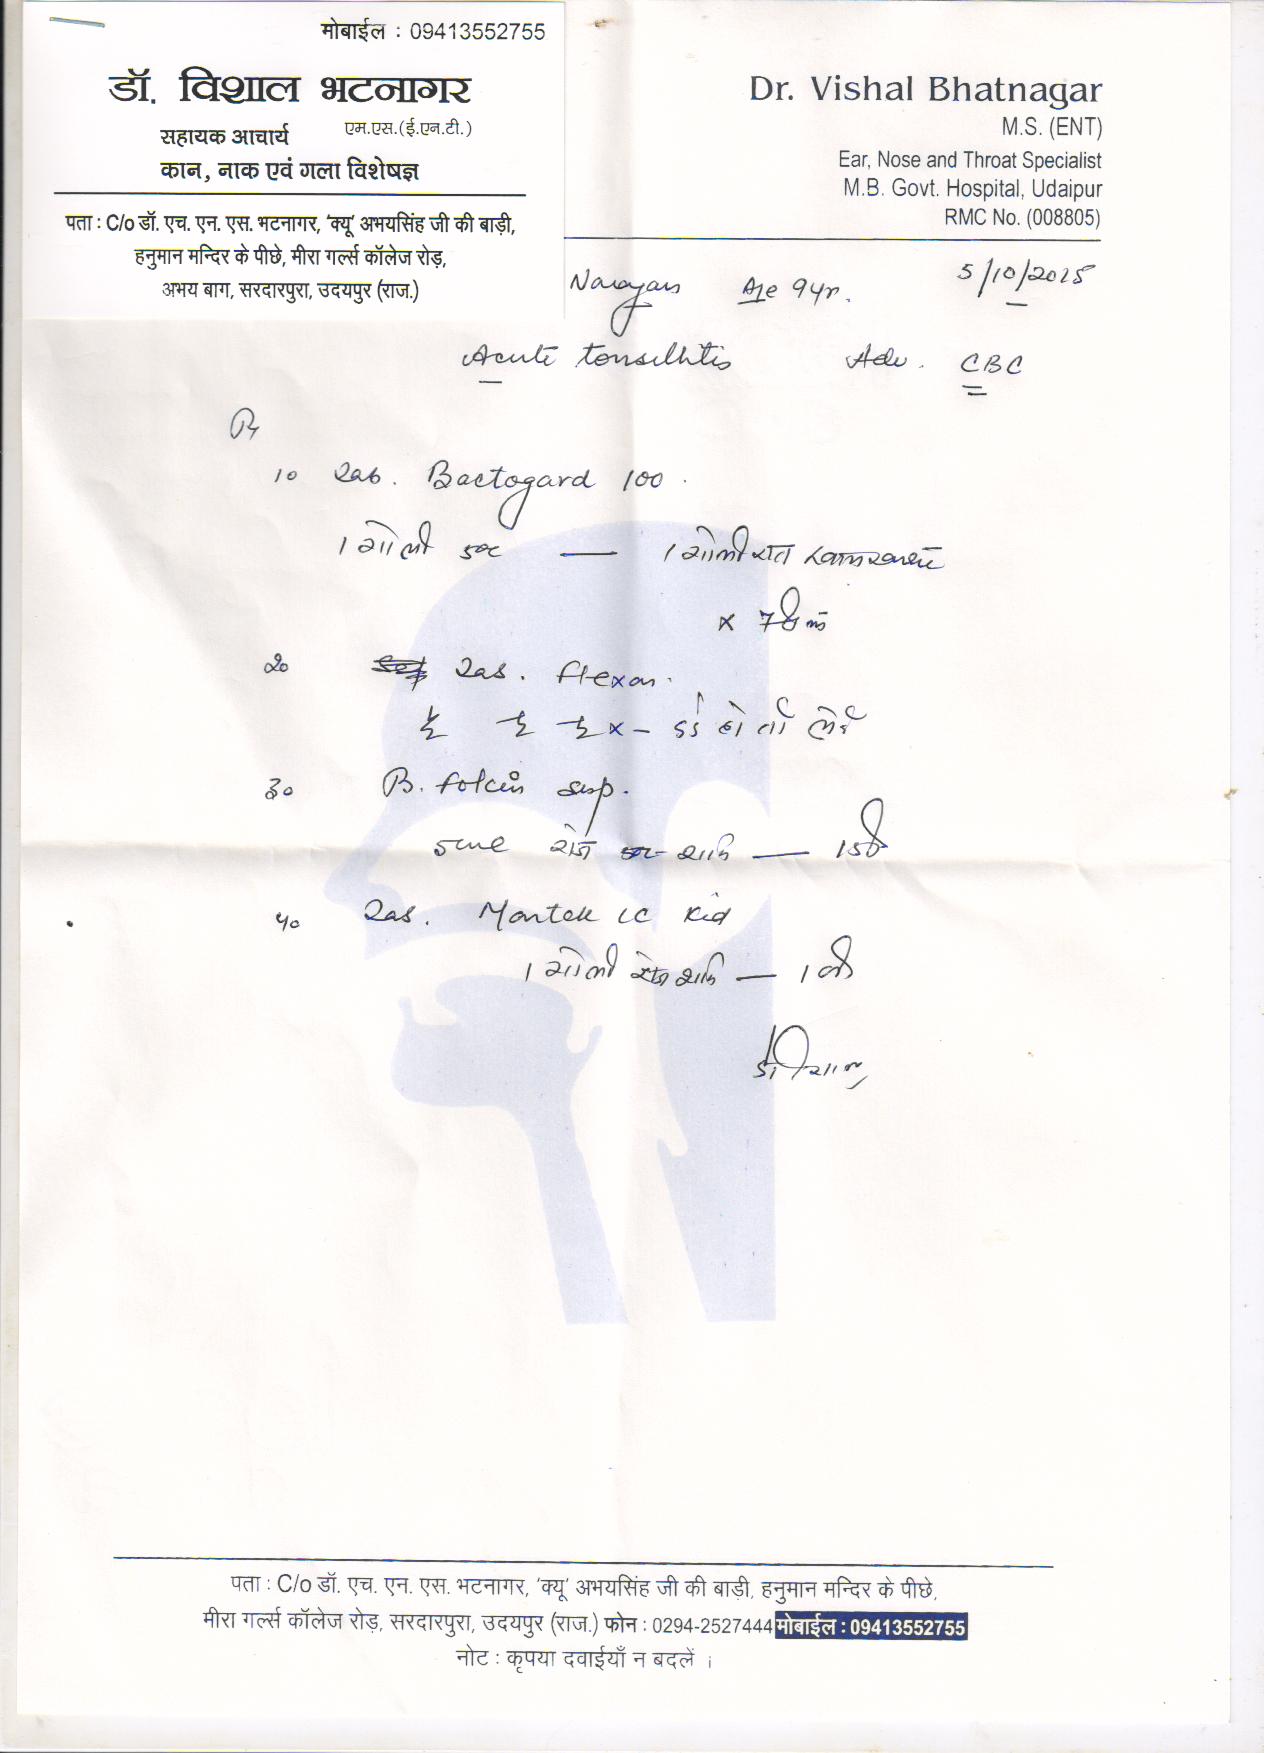 मोबाईल : 09413552755
डॉ. विशाल भटनागर
एम.एस.(ई.एन.टी.)
सहायक आचार्य
कान, नाक एवं गला विशेषज्ञ
पता : C/o डॉ. एच. एन. एस. भटनागर, 'क्यू' अभयसिंह जी की बाड़ी,
हनुमान मन्दिर के पीछे, मीरा गर्ल्स कॉलेज रोड़,
अभय बाग, सरदारपुरा, उदयपुर (राज.)
Dr. Vishal Bhatnagar
M.S. (ENT)
Ear, Nose and Throat Specialist
M.B. Govt. Hospital, Udaipur
RMC No. (008805)
Narayan Age 9yr. 5/10/2015
Acute tonsillitis Adv. CBC
Rx
Tab. Bactogard 100
1 गोली 1 गोली रात
x 7
Tab. flexon.
हो तो
B. folcin susp.
रोज
Tab. Montek LC Kid
1 गोली रोज
पता : C/o डॉ. एच. एन. एस. भटनागर, 'क्यू' अभयसिंह जी की बाड़ी, हनुमान मन्दिर के पीछे,
मीरा गर्ल्स कॉलेज रोड़, सरदारपुरा, उदयपुर (राज.) फोन : 0294-2527444 मोबाईल : 09413552755
नोट : कृपया दवाईयाँ न बदलें ।